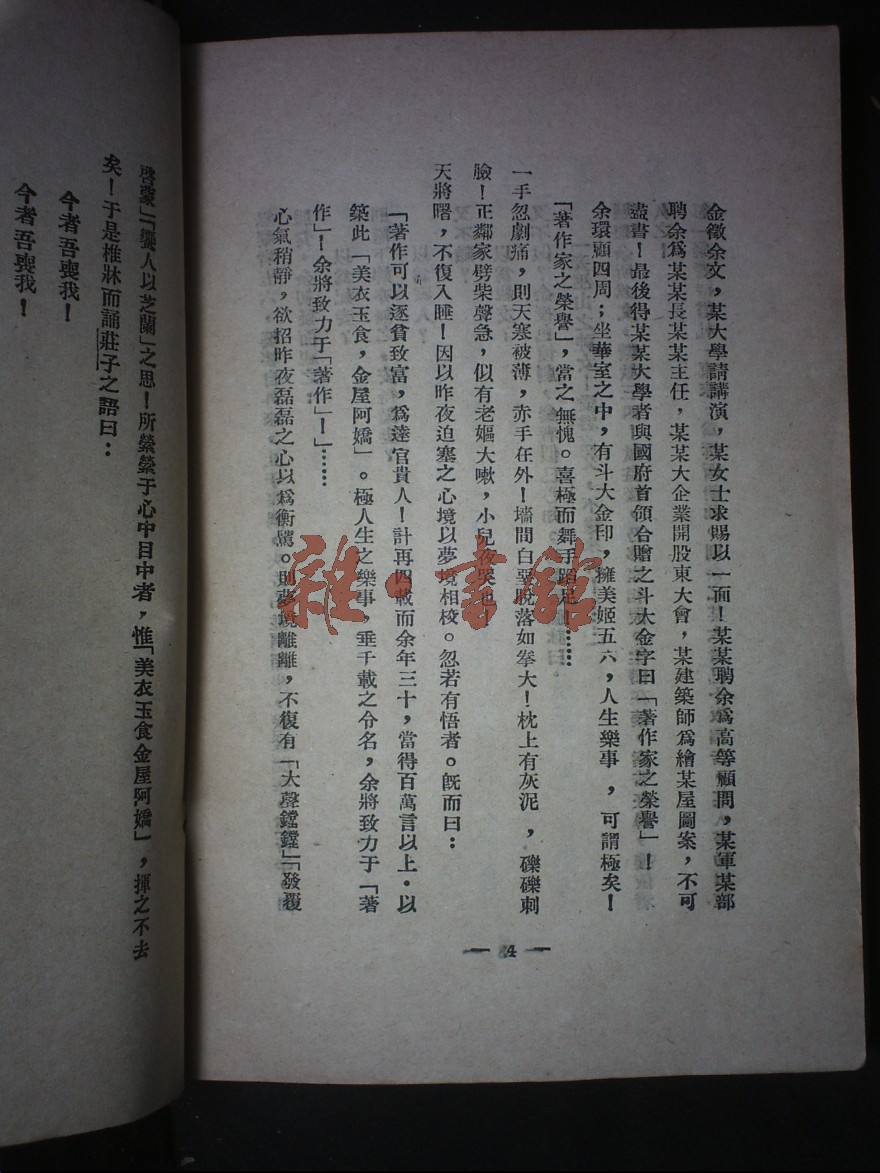 金徵余文，某大學請講演，某女士求賜以一面！某某聘余爲高等顧問，某軍某部
聘余爲某某長某某主任，某某大企業開股東大會，某建築師爲繪某屋圖案，不可
盡書！最後得某某大學者與國府首領合贈之斗大金字曰「著作家之榮譽」！
余環顧四周；坐華室之中，有斗大金印，擁美姬五六，人生樂事，可謂極矣！
「著作家之榮譽」，當之無愧。喜極而舞手蹈足！……
一手忽劇痛，則天寒被薄，赤手在外！墻間白堊脫落如拳大！枕上有灰泥，礫礫刺
臉！正鄰家劈柴聲急，似有老嫗大嗽，小兒夜哭也！
天將曙，不復入睡！因以昨夜迫塞之心境以夢境相校。忽若有悟者。旣而曰：
「著作可以逐貧致富，爲達官貴人！計再四載而余年三十，當得百萬言以上．以
築此「美衣玉食，金屋阿嬌」。極人生之樂事，垂千載之令名，余將致力于「著
作」！余將致力于「著作」！」……
心氣稍靜，欲招昨夜磊磊之心以爲衡篤。則夢境離離，不復有「大聲鏜鏜」「發覆
— 4 —
啓蒙」「饗人以芝蘭」之思！所縈縈于心中目中者，惟「美衣玉食金屋阿嬌」，揮之不去
矣！于是椎牀而誦莊子之語曰：
今者吾喪我！
今者吾喪我！
雜·書館